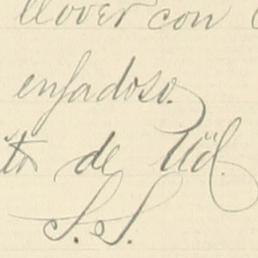 llover con
enfadoso.
de Ud.
S. S.